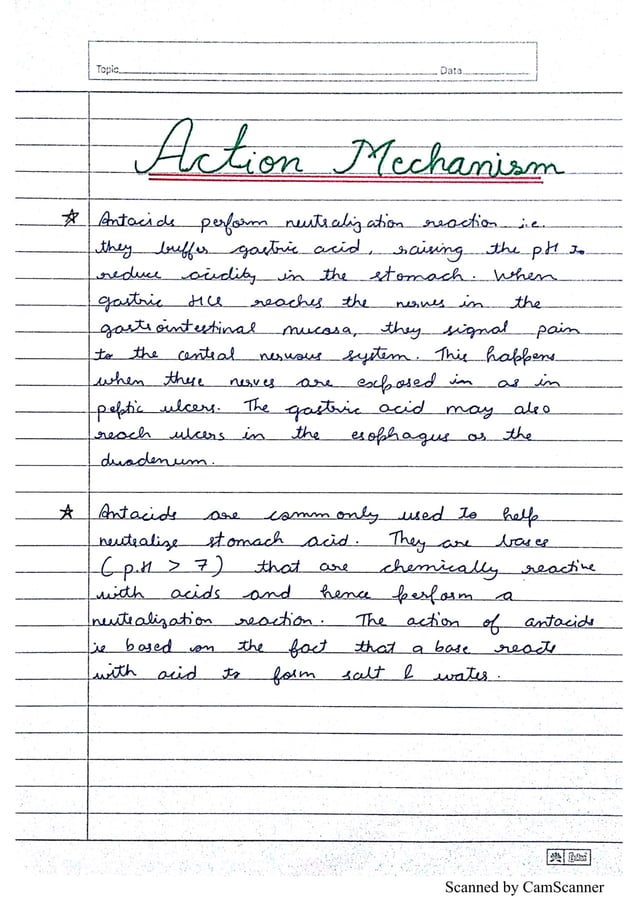 Topic Date
Action Mechanism
☆ Antacids perform neutralization reaction i.e.
they buffer gastric acid, raising the pH to
reduce acidity in the stomach. When
gastric HCl reaches the nerves in the
gastrointestinal mucosa, they signal pain
to the central nervous system. This happens
when these nerves are exposed in as in
peptic ulcers. The gastric acid may also
reach ulcers in the esophagus or the
duodenum.
☆ Antacids are commonly used to help
neutralize stomach acid. They are bases
( p.H > 7) that are chemically reactive
with acids and hence perform a
neutralization reaction. The action of antacids
is based on the fact that a base reacts
with acid to form salt & water.
Scanned by CamScanner